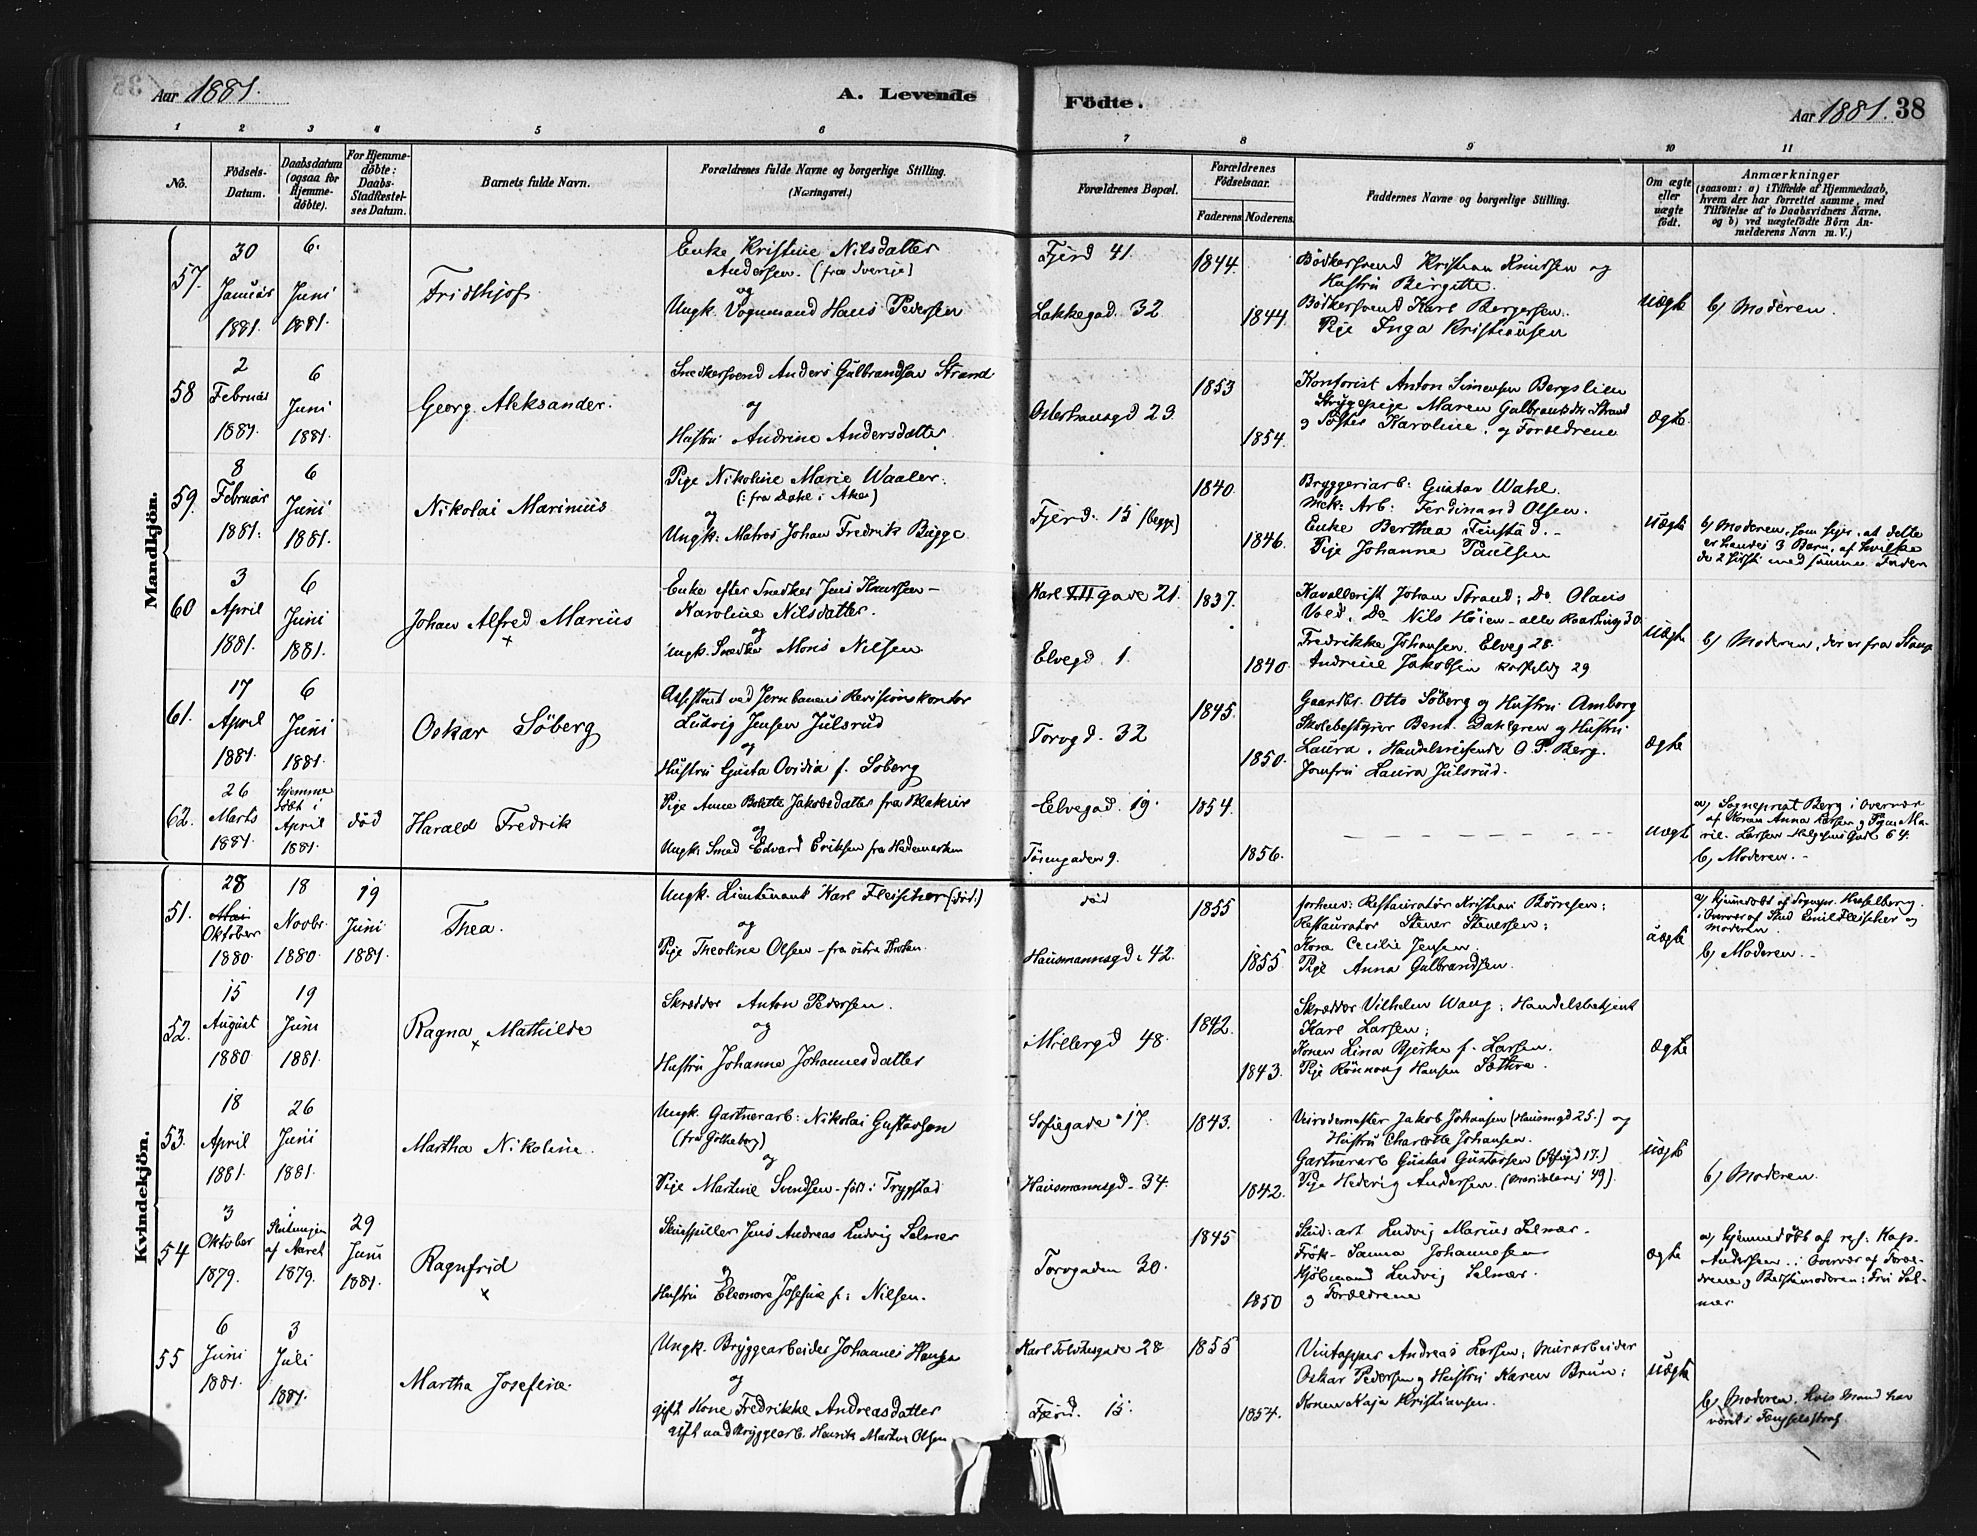 Aar 1881.
A. Levende Födte.
Aar 1881. 38
1 2 3 4 5 6 7 8 9 10 11
No.
Födsels-Datum.
Daabsdatum (ogsaa for Hjemme-döbte).
For Hjemme-döbte: Daabs-Stadfæstel-ses Datum.
Barnets fulde Navn.
Forældrenes fulde Navne og borgerlige Stilling.
(Næringsvei.)
Forældrenes Bopæl.
Forældrenes Födselsaar.
Faderens. Moderens.
Faddernes Navne og borgerlige Stilling.
Om ægte eller uægte födt.
Anmærkninger
(saasom: a) i Tilfælde af Hjemmedaab,
hvem der har forrettet samme, med
Tilföielse af to Daabsvidners Navne,
og b) ved uægtefödte Börn An-
melderens Navn m. V.)
Mandkjön.
57. 30 Januar 1881. 6. Juni 1881. Fridthjof
Enke Kristine Nilsdatter
Andersen. (fra Sverige)
og
Ungk. Vognmand Hans Pedersen
Fjerd 41
Lakkegad. 32
1844. 1844.
Bödkersvend Kristian Knudsen og
Hustru Birgitte.
Bödkersvend Karl Bergersen.
Pige Inga Kristiansen
uægte
b) Moderen.
58 2 Februar 1881. 6 Juni 1881. Georg Aleksander.
Snedkersvend Anders Gulbrandsen Strand
og
Hustru Andrine Andersdatter.
Osterhausgd 29.
1853 1854.
Kontorist Anton Simensen Bergslien
Strygepige Maren Gulbrandsdtr Strand
og Söster Karoline, og Forældrene
ægte.
59. 8 Februar 1881. 6 Juni 1881. Nikolai Marinius
Pige Nikoline Marie Waaler.
(: fra Dahl i Aker)
og
Ungk: Matros Johan Fredrik Bugge.
Fjerd. 15 (begge)
1840. 1846.
Bryggeriarb: Gustav Wahl.
Mek: Arb: Ferdinand Olsen.
Enke Berthea Finstad.-
Pige Johanne Paulsen
uægte
b) Moderen, som siger, at dette
er hendes 3 Barn, af hvilke
de 2 sidste med samme Fader
60 3 April 1881. 6 Juni 1881. Johan Alfred Marius
x
Enke efter Snedker Jens Knudsen -
Karoline Nilsdatter.
og
Ungk. Snedker Moris Nilsen
Karl XII gade 21.
Elvegd. 1.
1837. 1840.
Kavallerist Johan Strand; Do Olaus
Vold, Do Nils Höien - alle 30
Fredrikke Johansen. Elveg 28.
Andrine Jakobsen 29
uægte
b) Moderen, der er fra Stange
61. 17 April 1881. 6 Juni 1881. Oskar Söberg
Assistent ved Jernbanens Revisionskontor
Ludvig Jensen Julsrud
og
Hustru Gusta Ovidia f. Söberg
Torvgd. 32
1845. 1850.
Gaardbr. Otto Söberg og Hustru Amborg
Skolebestyrer Bent. Dahlgren og Hustru
Laura. Handelsreisende O. P. Berg.
Jomfru Laura Julsrud.
ægte
62. 26 Marts 1881. Hjemme döbt i April 1881. död Harald Fredrik
Pige Anne Bolette Jakobsdatter fra Blakier
og
Ungk: Smed Edvard Eriksen fra Hedemarken
Elvegad. 19.
Töiengaden 9.
1854. 1856.
uægte
a) Sogneprest Berg i Overvær
af Konen Anna Larsen og Pigen Ma-
rie Larsen Helgesens Gade 64.
b) Moderen. -
Kvindekjön.
51. 28 Mai Oktober 1880. 18 Novbr. 1880. 19 Juni 1881. Thea.
Ungk. Lieutenant Karl Fleischer (död.)
og
Pige Theoline Olsen - fra östre Thoten.
död
Hausmannsgd. 42.
1855 1855
forhenv: Restauratör Kristian Börresen;
Restauratör Stener Stenersen;
Kone Cecilie Jensen.
Pige Anna Gulbrandsen.
uægte
a) Hjemmedöbt af Sognepr. Hesselberg.
i Overvær af Stud Emil Fleischer og
Moderen.
b) Moderen. -
52. 15 August 1880 19 Juni 1881. Ragna Mathilde
x
Skrædder Anton Pedersen.
og
Hustru Johanne Johannesdatter
Möllergd 48.
1842. 1843.
Skrædder Vilhelm Wang; Handelsbetjent
Karl Larsen;
Konen Lina Bjerke f. Larsen.
Pige Rönnoug Hansen Sæthre.
ægte
53. 18 April 1881. 26 Juni 1881. Martha Nikoline.
Ungk. Gartnerarb: Nikolai Gustavson
(fra Götheborg)
og
Pige Martine Svendsen - född i Trygstad
Sofiegade 17.
Hausmannsgd. 34.
1843. 1842.
Jakob Johansen (Hausmgd 25.) og
Hustru Charlotte Johansen.
Gartnerarb Gustav Gustavsen (Sofigd 17.)
Pige Hedevig Andersen. (Maridalsvei 49).
uægte
b) Moderen.
54 3 Oktober 1879. i Slutningen af Aaret 1879. 29 Juni 1881. Ragnfrid
x
Skuespiller Jens Andreas Ludvig Selmer
og
Hustru Eleonora Josefine f: Nilsen.
Torvgaden 30.
1845 1850
Stud: art Ludvig Marius Selmer.
Frök- Sanna Johannesen
Kjöbmand Ludvig Selmer.
og Forældrene
ægte
a) Hjemmedöbt af res: Kap.
Andersen. i Overvær af Foræl-
drene og Bestemoderen: Fru Sel-
mer
55 6 Juni 1881. 3 Juli 1881. Martha Josefine.
Ungk. Bryggearbeider Johannes Hansen
og
gift Kone Fredrikke Andreasdatter
gift med Bryggearb. Henrik Martin Olsen
Karl Toldtesgade 28
Fjerd. 15.
1855 1854.
Vintapper Andreas Larsen; Murarbeider
Oskar Pedersen og Hustru Karen Bruun;
Konen Kaja Kristiansen.
uægte
b) Moderen, hvis Mand har
været i Fængselsstraf.